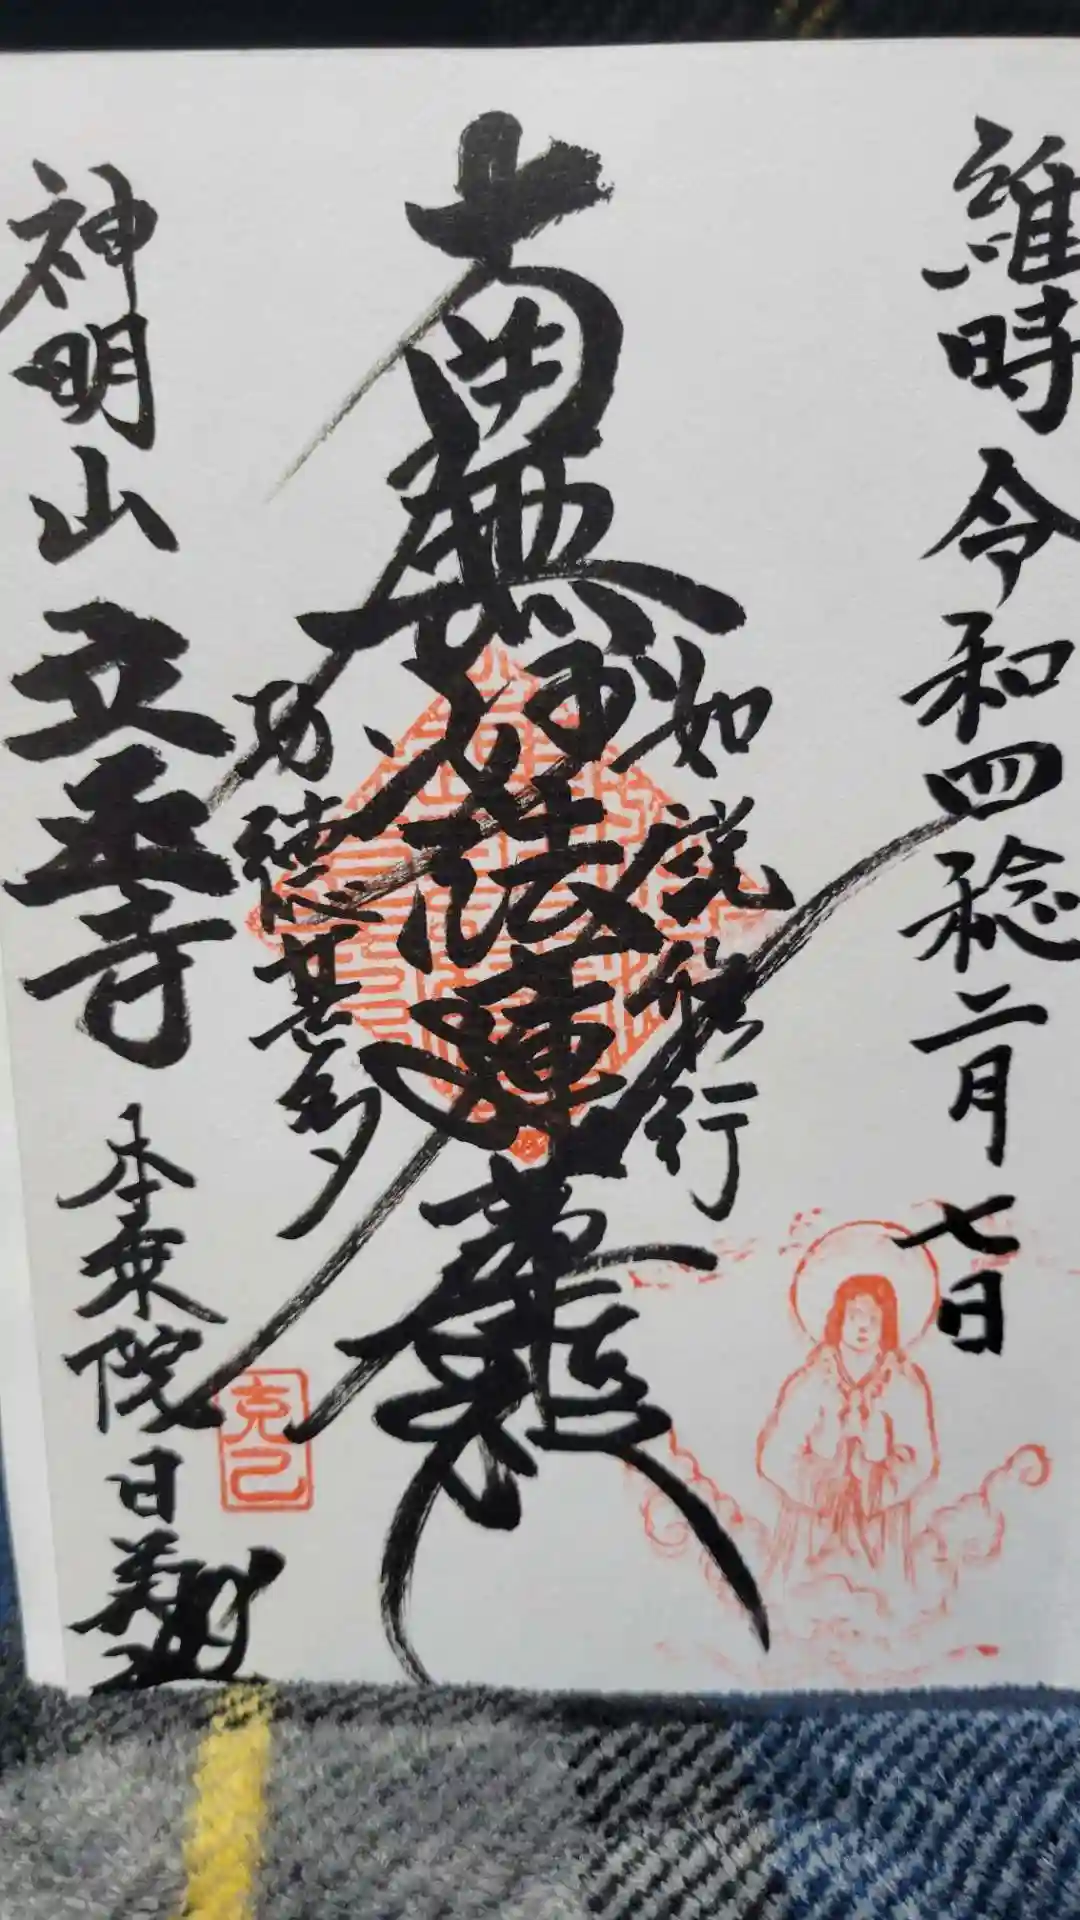 維時 令和四稔二月 七日
如説修行
南無妙法蓮華経
功徳甚多
神明山 立正寺 本乗院 日美
克己